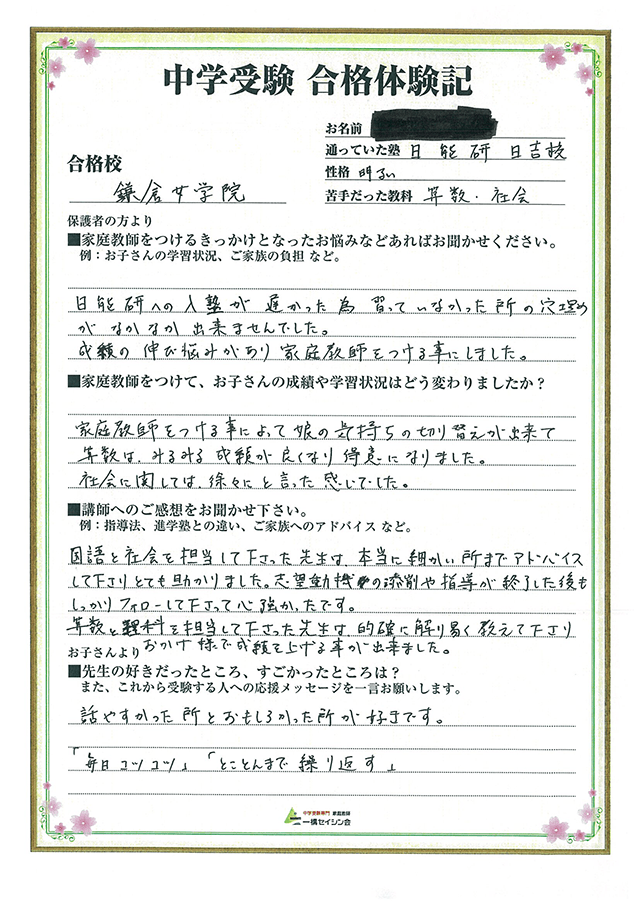 中学受験 合格体験記
お名前
通っていた塾 日能研 日吉校
性格 明るい
苦手だった教科 算数・社会
合格校
鎌倉女学院
保護者の方より
■家庭教師をつけるきっかけとなったお悩みなどあればお聞かせください。
例：お子さんの学習状況、ご家族の負担 など。
日能研への入塾が遅かった為 習っていなかった所の穴埋め
がなかなか出来ませんでした。
成績の伸び悩みがあり家庭教師をつける事にしました。
■家庭教師をつけて、お子さんの成績や学習状況はどう変わりましたか？
家庭教師をつける事によって娘の気持ちの切り替えが出来て
算数は、みるみる成績が良くなり得意になりました。
社会に関しては、徐々にと言った感じでした。
■講師へのご感想をお聞かせ下さい。
例：指導法、進学塾との違い、ご家族へのアドバイス など。
国語と社会を担当して下さった先生は、本当に細かい所までアドバイス
して下さりとても助かりました。志望動機の添削や指導が終了した後も
しっかりフォローして下さって心強かったです。
算数と理科を担当して下さった先生は、的確に解り易く教えて下さり
おかげ様で成績を上げる事が出来ました。
お子さんより
■先生の好きだったところ、すごかったところは？
また、これから受験する人への応援メッセージを一言お願いします。
話やすかった所とおもしろかった所が好きです。
「毎日コツコツ」「とことんまで繰り返す」
中学受験専門 家庭教師
一橋セイシン会